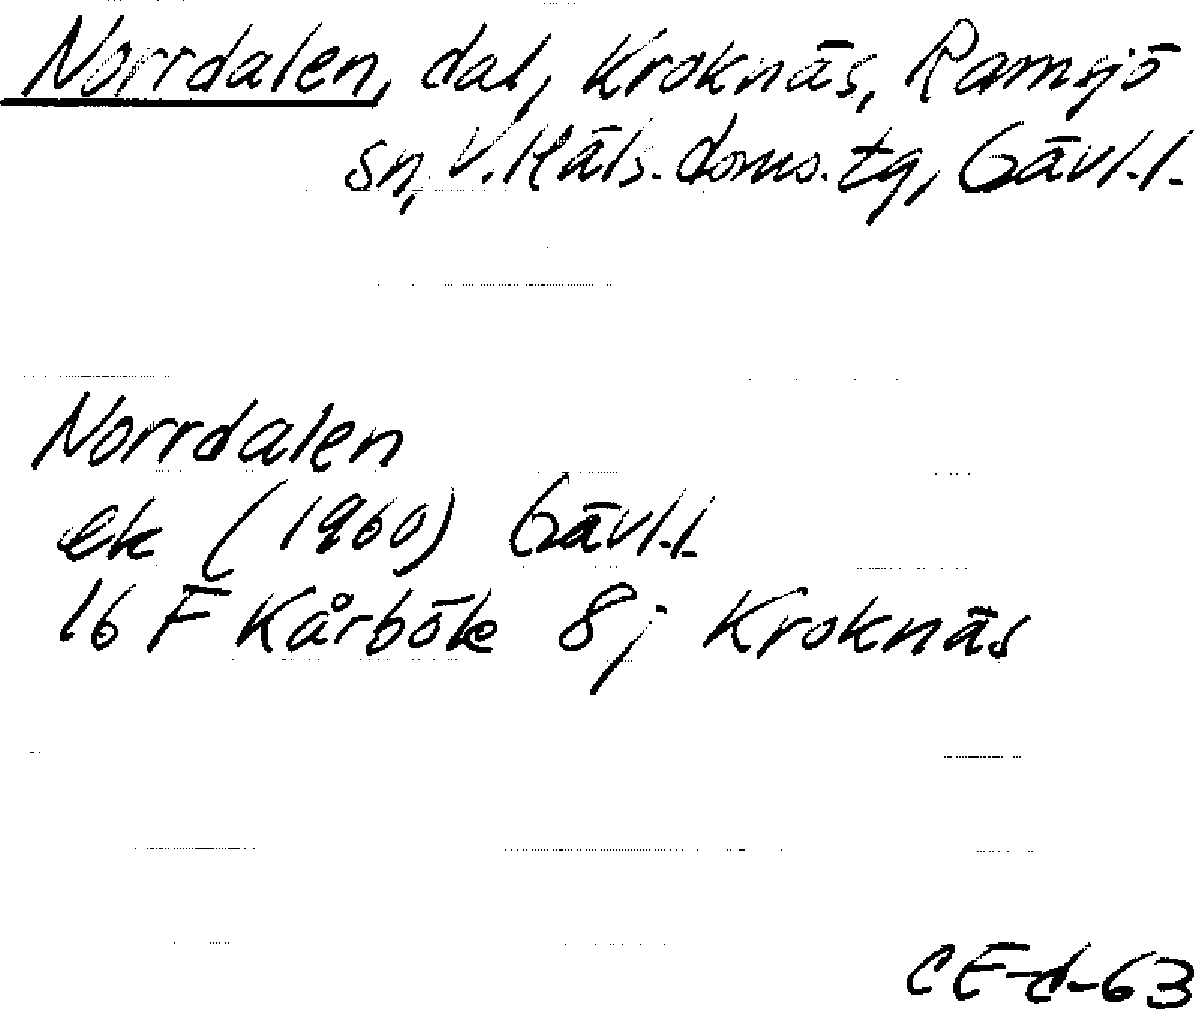 Norrdalen, dal, Kroknäs, Ramsjö
sn, V. Häls. doms. tg, Gävl.l.
Norrdalen
ek (1960) Gävl.l.
16 F Kårböle 8j Kroknäs
CE-d-63